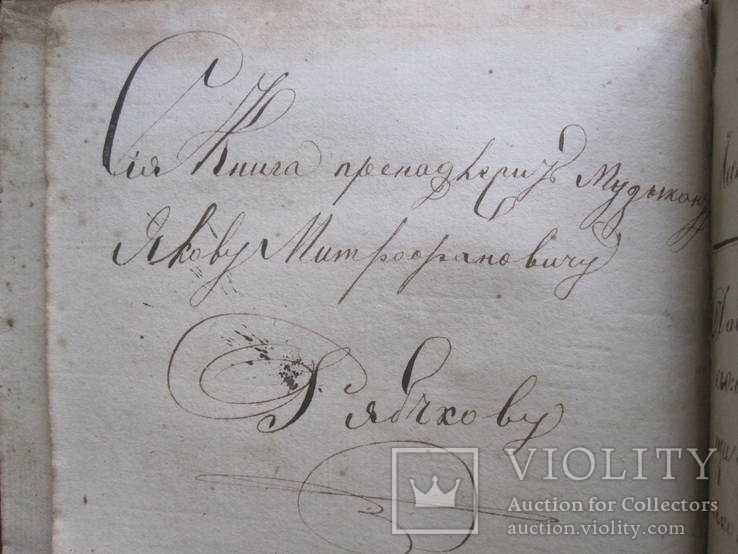 Сія Книга принадлежитъ Музыкан
Якову Митрофановичу
Рябчкову
VIOLITY
Auction for Collectors
auction.violity.com